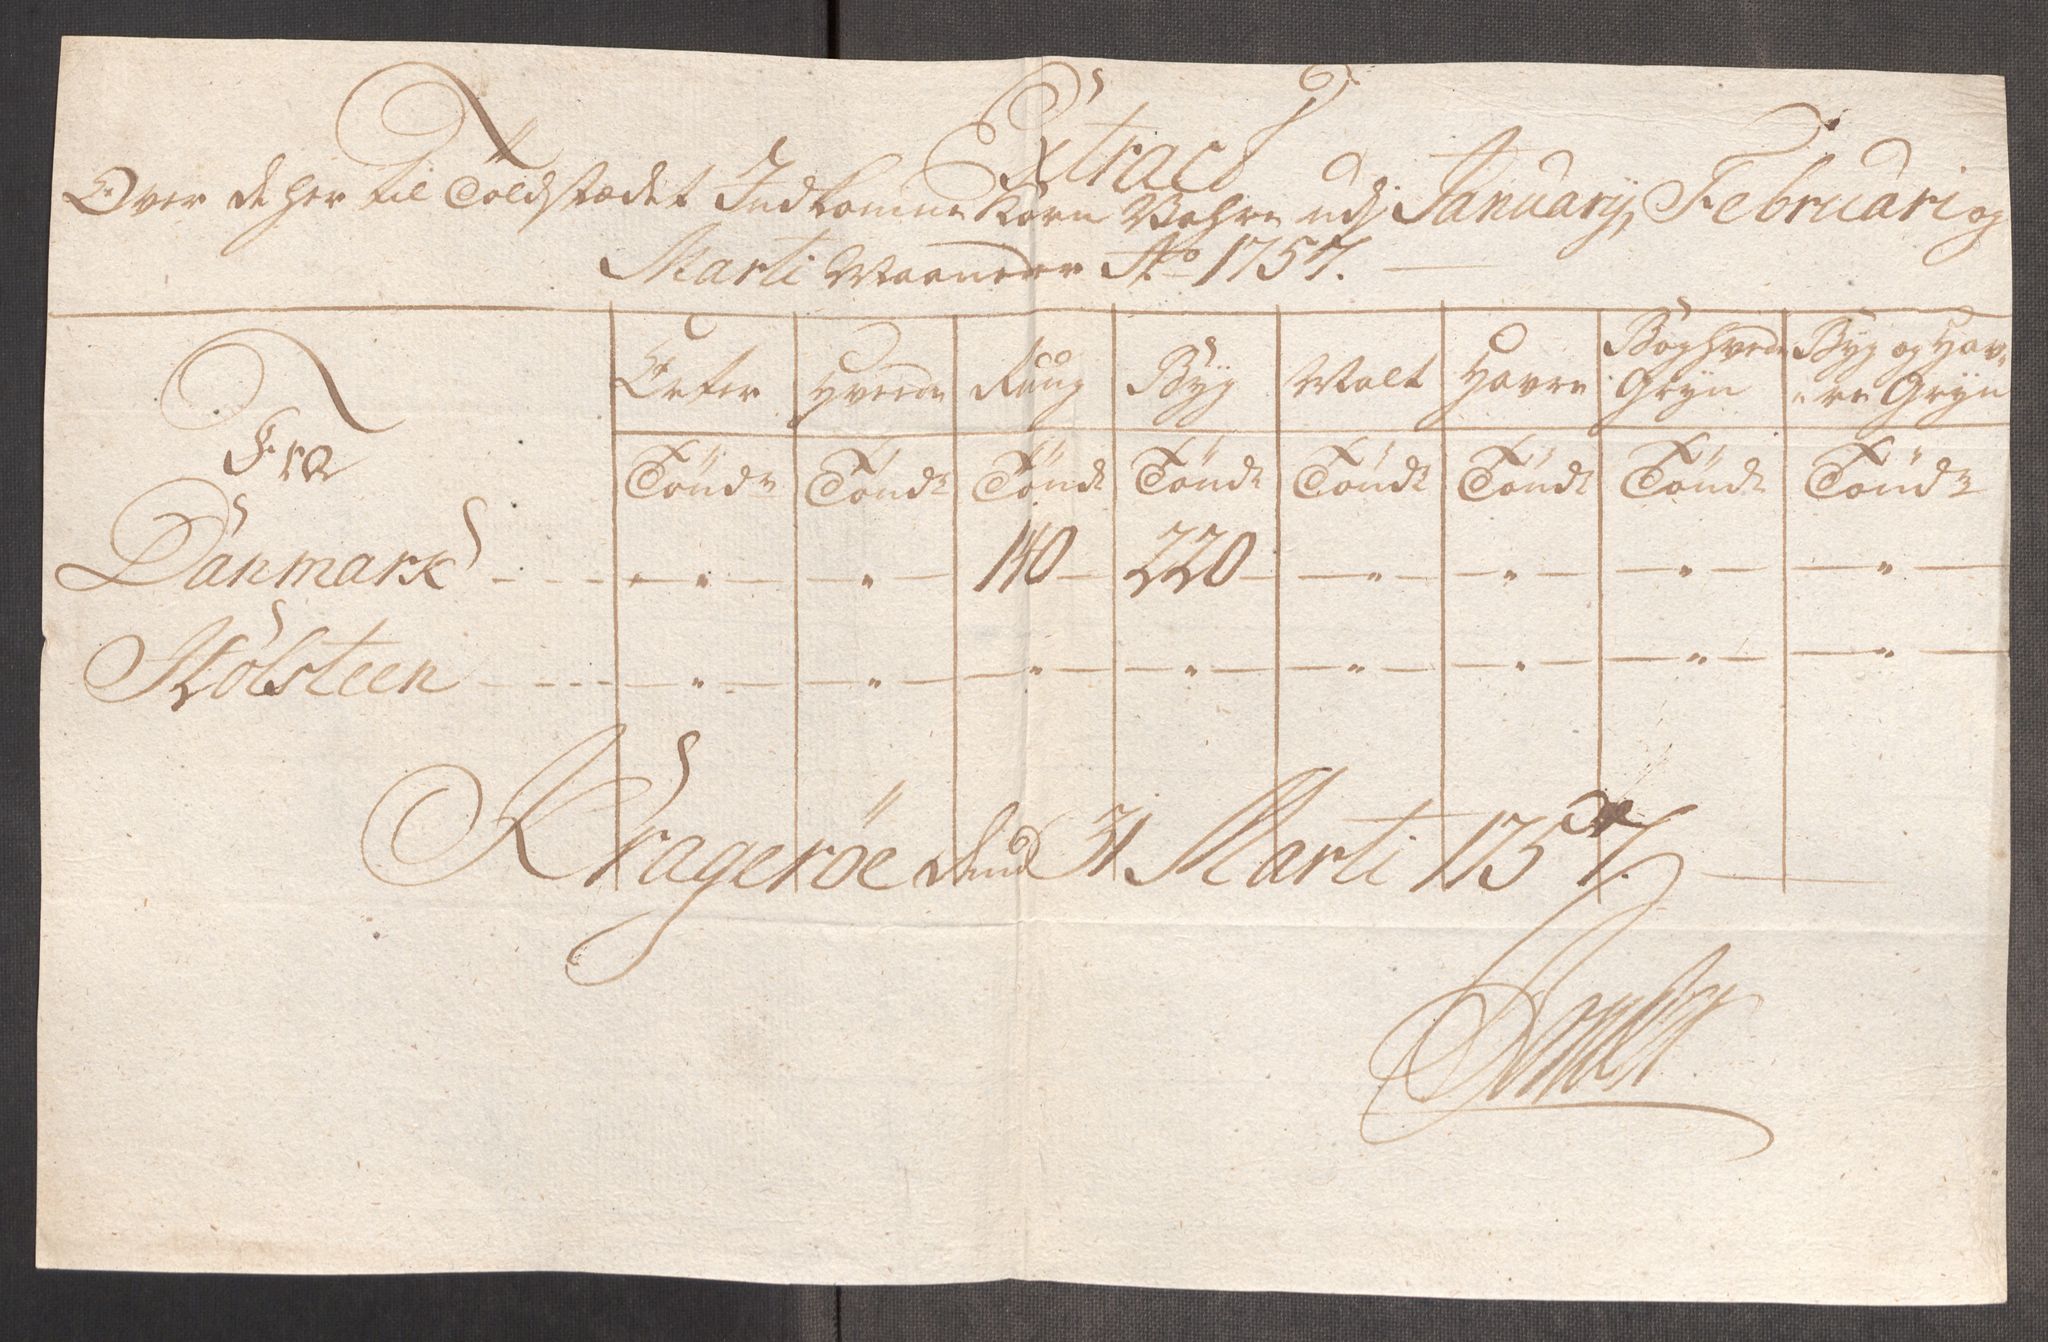 Extract
Over de her til Toldstædet Indkomne Korn Vahre udj Januarij, Februari og
Marti Maaneder Ao 1757.
Fra
Erter Hvede Rug Byg Malt Havre Boghvede Gryn Byg og Hav-re Gryn
Tönde Tönde Tönde Tönde Tönde Tönde Tönde Tönde
Danmark - " - " 140 220 " " " "
Holsteen " " " " " " " "
Krageröe dend 31 Marti 1757.